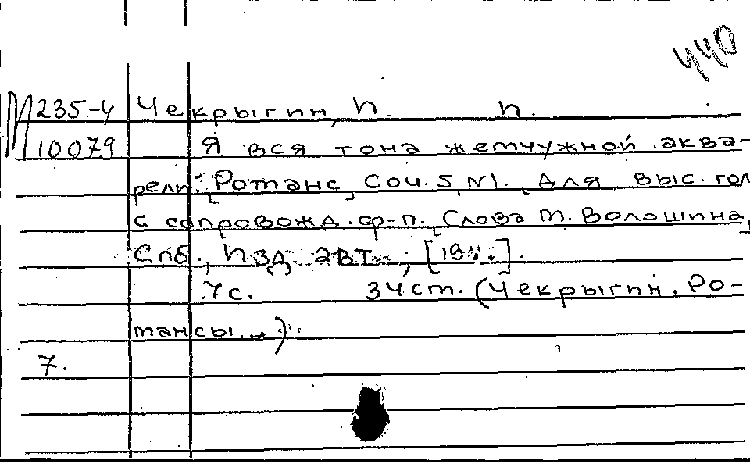 440
М 235-4 Чекрыгин, И. П.
10079 Я вся тона жемчужной аква-
рели. [Романс] Соч. 5, №1. Для выс. гол
с сопровожд. ф-п. [Слова М. Волошина,
Спб., Изд. авт.,
7 с. 34 см. (Чекрыгин. Ро-
мансы...).
7.